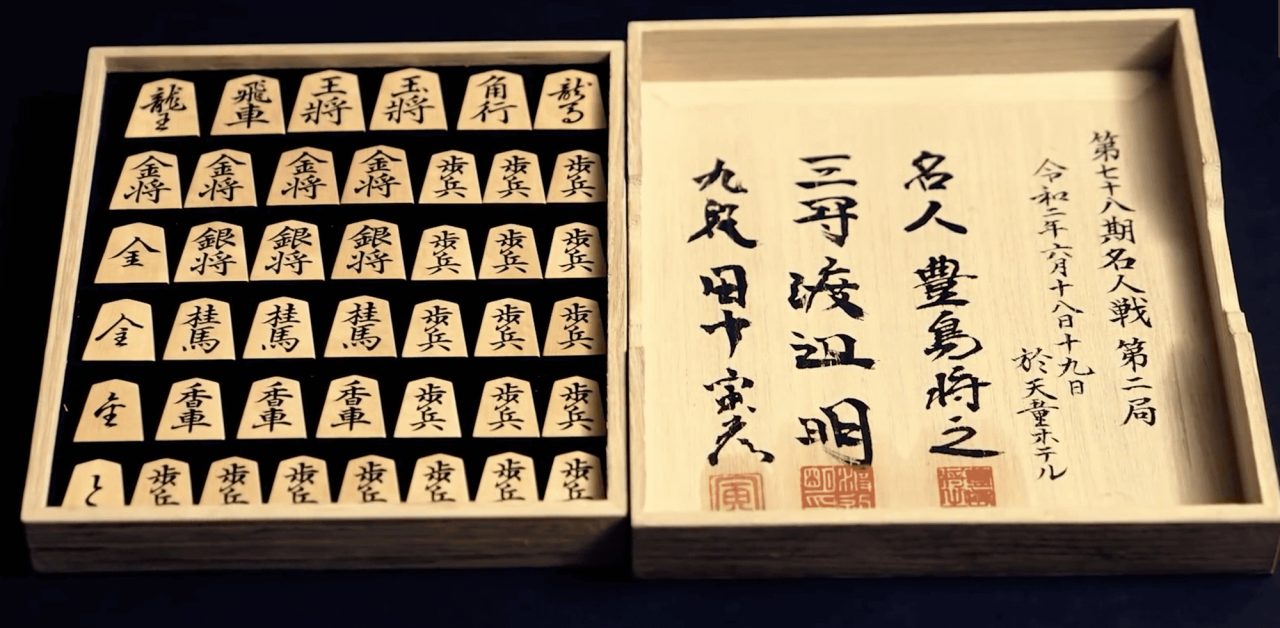 龍王 飛車 王將 玉將 角行 龍馬
金将 金将 金将 金将 歩兵 歩兵 歩兵
全 銀将 銀将 銀将 歩兵 歩兵 歩兵
全 桂馬 桂馬 桂馬 歩兵 歩兵 歩兵
香車 香車 香車 歩兵 歩兵 歩兵
と 歩兵 歩兵 歩兵 歩兵 歩兵 歩兵 歩兵
第七十八期名人戦第二局
令和二年六月十八日十九日
於天童ホテル
名人 豊島将之
三冠 渡辺 明
九段 田中寅彦
寅